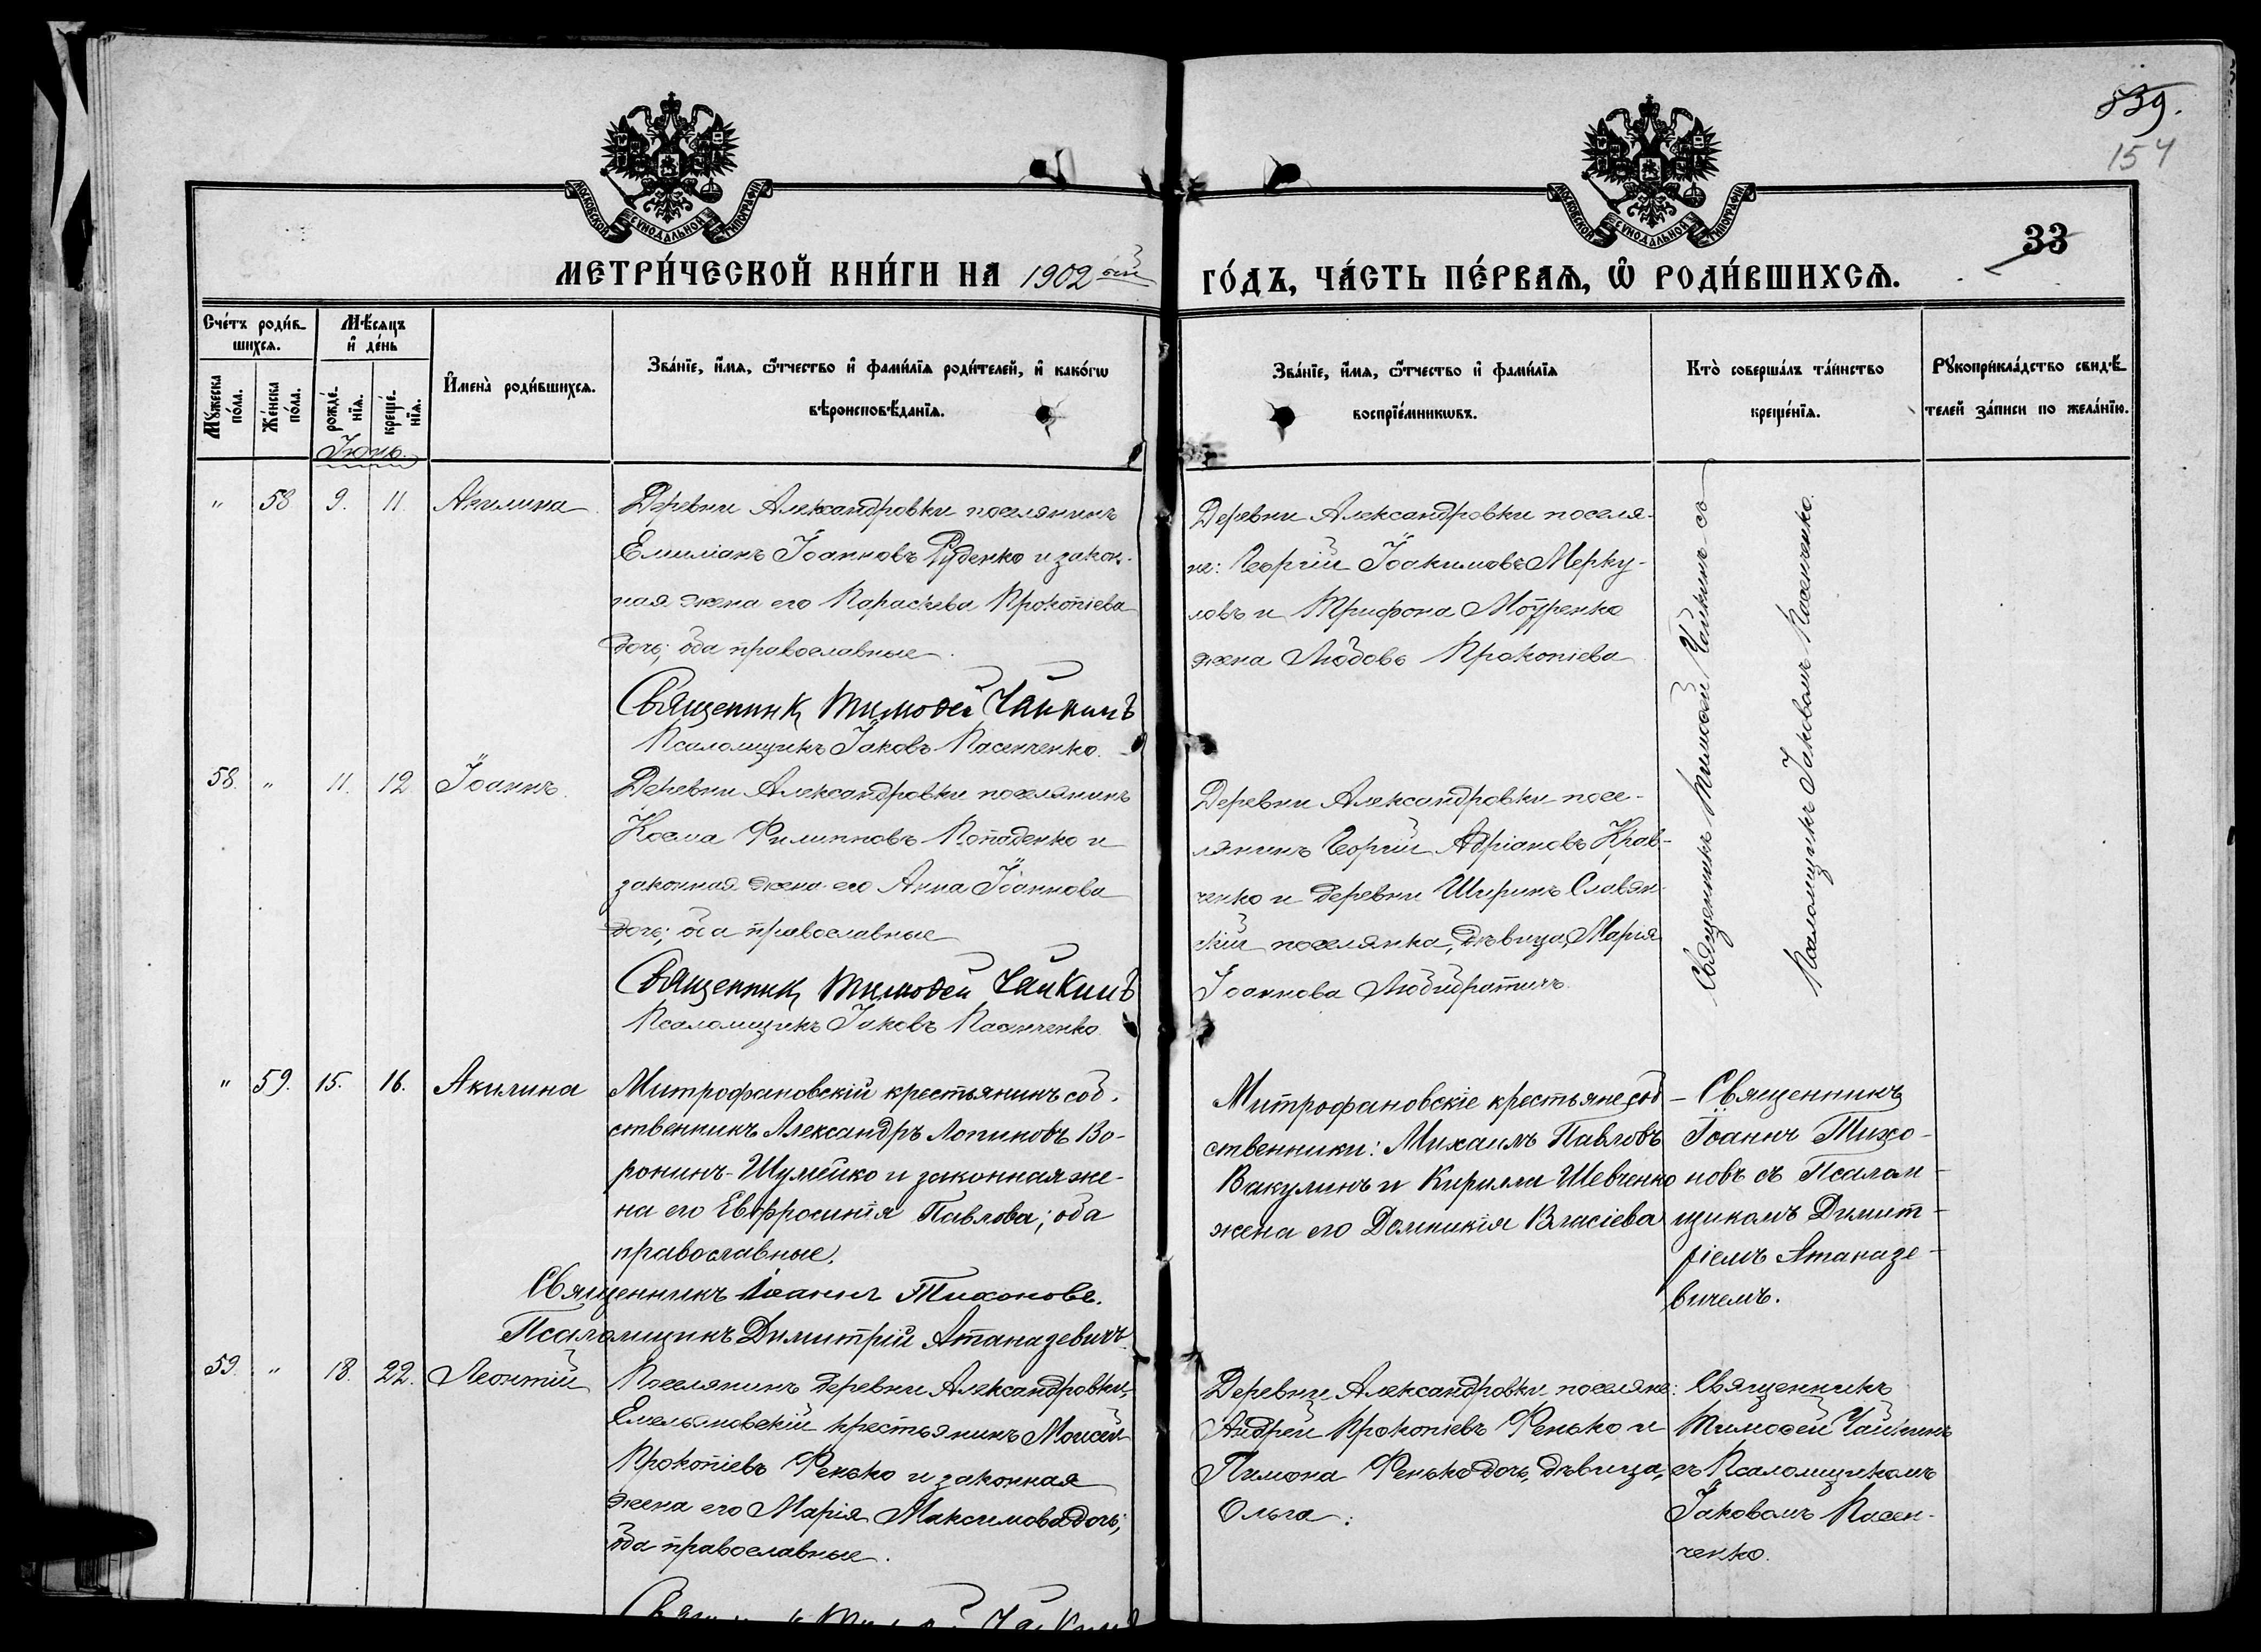 839.
154
33
МОСКОВСКОЙ СѴНОДАЛЬНОЙ ТИПОГРАФІИ
МОСКОВСКОЙ СѴНОДАЛЬНОЙ ТИПОГРАФІИ
МЕТРИ́ЧЕСКОЙ КНИ́ГИ НА 1902 ой
ГО́ДЪ, ЧА́СТЬ ПЕ́РВАѦ, Ѽ РОДИ́ВШИХСѦ.
Сче́тъ роди́в-
шихсѧ.
Мѣ́сѧцъ
и҆ де́нь
Мꙋ́жеска по́ла.
Же́нска по́ла.
рожде́-
нїѧ.
креще́-
нїѧ.
И҆мена̀ роди́вшихсѧ.
Зва́нїе, и҆́мѧ, ѻ҆́тчество и҆ фами́лїѧ роди́телей, и҆ како́гѡ
вѣроисповѣ́данїѧ.
Зва́нїе, и҆́мѧ, ѻ҆́тчество и҆ фами́лїѧ
воспрїе́мникѡвъ.
Кто̀ соверша́лъ та́инство
креще́нїѧ.
Рꙋкоприкла́дство свидѣ́-
телей за́писи по жела́нїю.
Іюнь.
" 58 9. 11. Акилина
Деревни Александровки поселянинъ
Емиліанъ Іоанновъ Руденко и закон-
ная жена его Параскева Прокопіева
дочь; оба православные.
Священникъ Тимоѳей Чайкинъ
Псаломщикъ Іаковъ Пасенченко.
Деревни Александровки поселя-
не: Георгій Іоакимовъ Мерку-
ловъ и Трифона Моуренко
жена Любовь Прокопіева
Священникъ Тимоѳей Чайкинъ съ
Псаломщикомъ Іаковомъ Пасенченко.
58. " 11. 12 Іоаннъ.
Деревни Александровки поселянинъ
Косма Филипповъ Попаденко и
законная жена его Анна Іоаннова
дочь; оба православные
Священникъ Тимоѳей Чайкинъ
Псаломщикъ Іаковъ Пасенченко.
Деревни Александровки посе-
лянинъ Георгій Адріановъ Крав-
ченко и деревни Ширинъ Славян-
скій поселянка, дѣвица, Марія
Іоаннова
" 59. 15. 16. Акилина
Митрофановскій крестьянинъ соб-
ственникъ Александръ Логиновъ Во-
ронинъ-Шумейко и законная же-
на его Евфросинія Павлова; оба
православные.
Священникъ Іоаннъ Тихоновъ.
Псаломщикъ Димитрій Атаназевичъ.
Митрофановскіе крестьяне соб-
ственники: Михаилъ Павловъ
Вакулинъ и Кирилла Шевченко
жена его Домникія Власіева
Священникъ
Іоаннъ Тихо-
новъ съ Псалом-
щикомъ Димит-
ріемъ Атаназе-
вичемъ.
59. " 18. 22. Леонтій
Поселянинъ деревни Александровки,
Емельяновскій крестьянинъ Моисей
Прокопіевъ Фенько и законная
жена его Марія Максимова дочь;
оба православные.
Деревни Александровки поселяне:
Андрей Прокопіевъ Фенько и
Пимона Фенько дочь, дѣвица,
Ольга.
Священникъ
Тимоѳей Чайкинъ
съ Псаломщикомъ
Іаковомъ Пасен-
ченко.